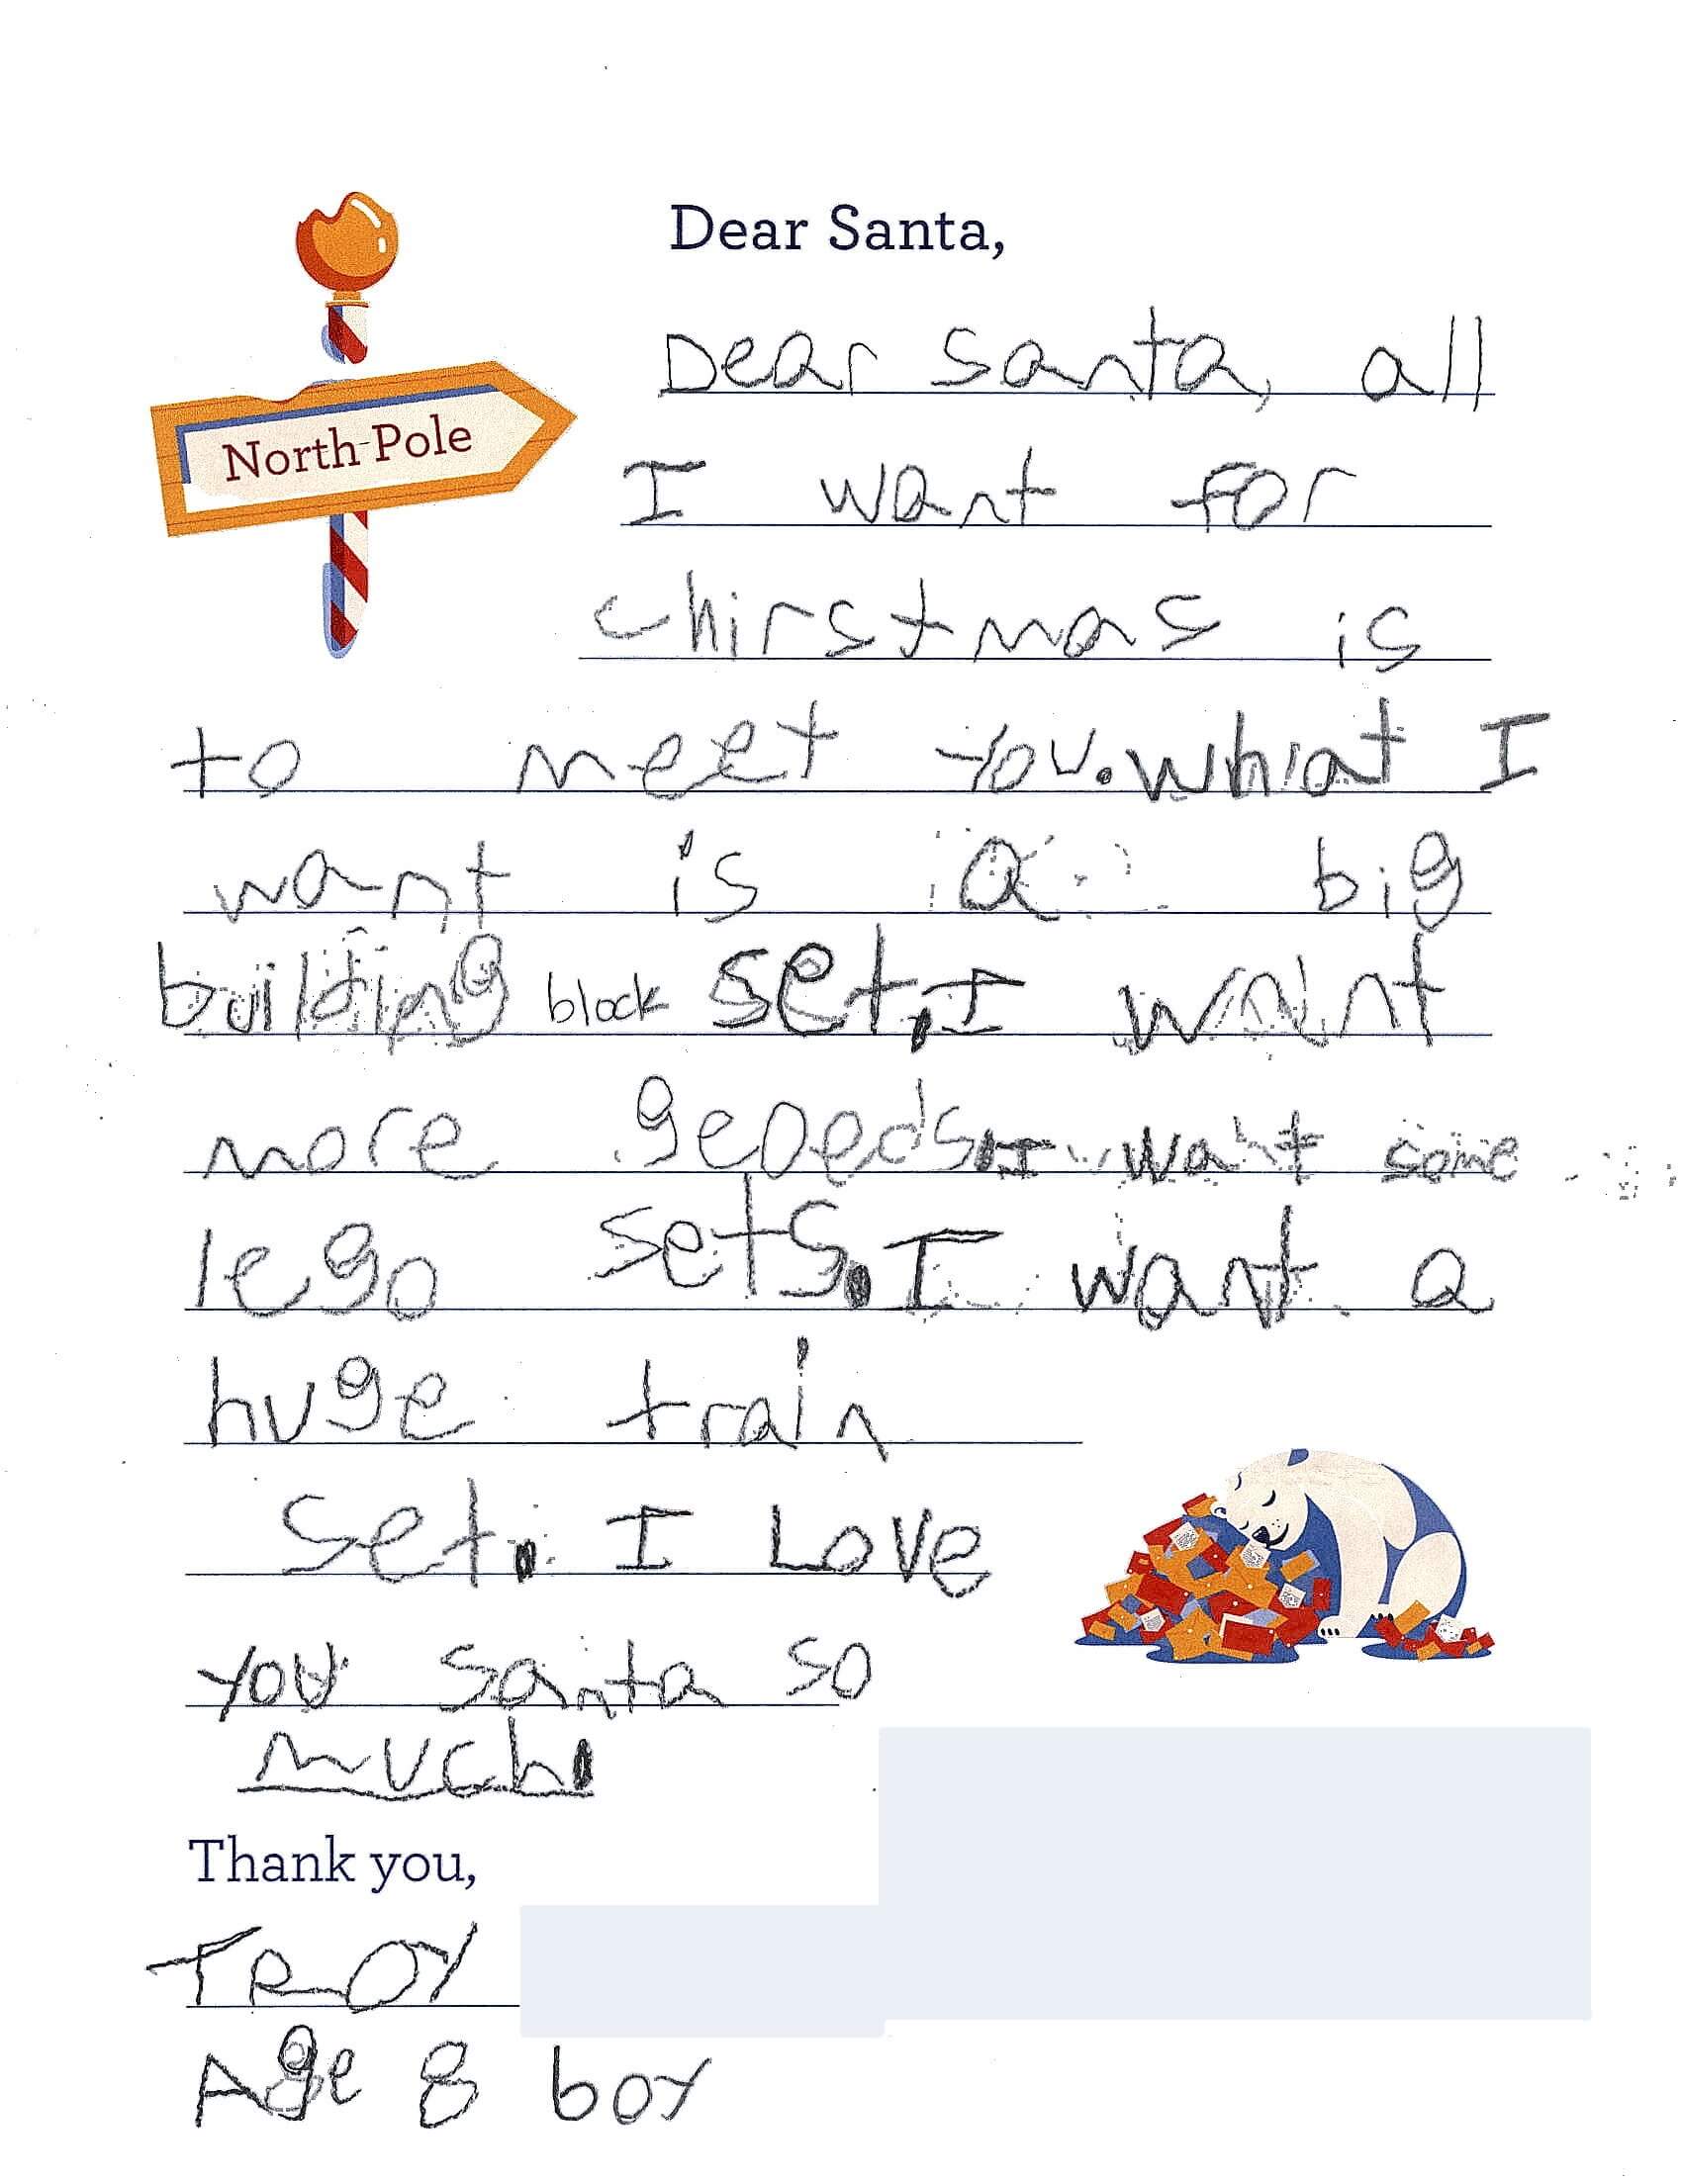 Dear Santa,
North Pole
Dear santa, all
I want for
chirstmas is
to meet you. what I
want is a big
building block set. I want
more geoeds. I want some
lego sets. I want a
huge train
set. I Love
you santa so
much.
Thank you,
TROY
Age 8 boy